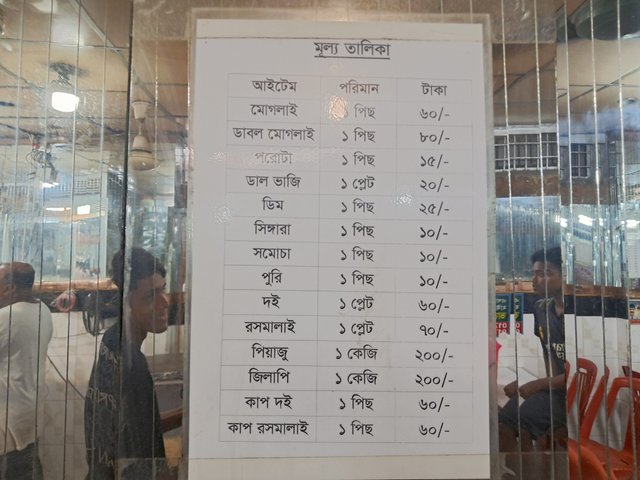 মূল্য তালিকা
আইটেম পরিমান টাকা
মোগলাই ১ পিছ ৬০/-
ডাবল মোগলাই ১ পিছ ৮০/-
পরোটা ১ পিছ ১৫/-
ডাল ভাজি ১ প্লেট ২০/-
ডিম ১ পিছ ২৫/-
সিঙ্গারা ১ পিছ ১০/-
সমোচা ১ পিছ ১০/-
পুরি ১ পিছ ১০/-
দই ১ প্লেট ৬০/-
রসমালাই ১ প্লেট ৭০/-
পিয়াজু ১ কেজি ২০০/-
জিলাপি ১ কেজি ২০০/-
কাপ দই ১ পিছ ৬০/-
কাপ রসমালাই ১ পিছ ৬০/-